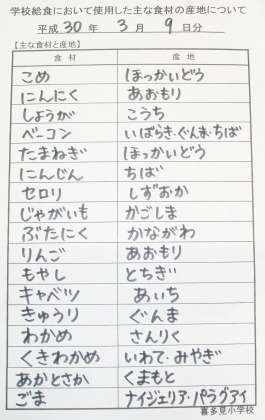 学校給食において使用した主な食材の産地について
平成 30 年 3 月 9 日分
【主な食材と産地】
食材 産地
こめ ほっかいどう
にんにく あおもり
しょうが こうち
ベーコン いばらき・ぐんま・ちば
たまねぎ ほっかいどう
にんじん ちば
セロリ しずおか
じゃがいも かごしま
ぶたにく かながわ
りんご あおもり
もやし とちぎ
キャベツ あいち
きゅうり ぐんま
わかめ さんりく
くきわかめ いわて・みやぎ
あかとさか くまもと
ごま ナイジェリア・パラグアイ
喜多見小学校